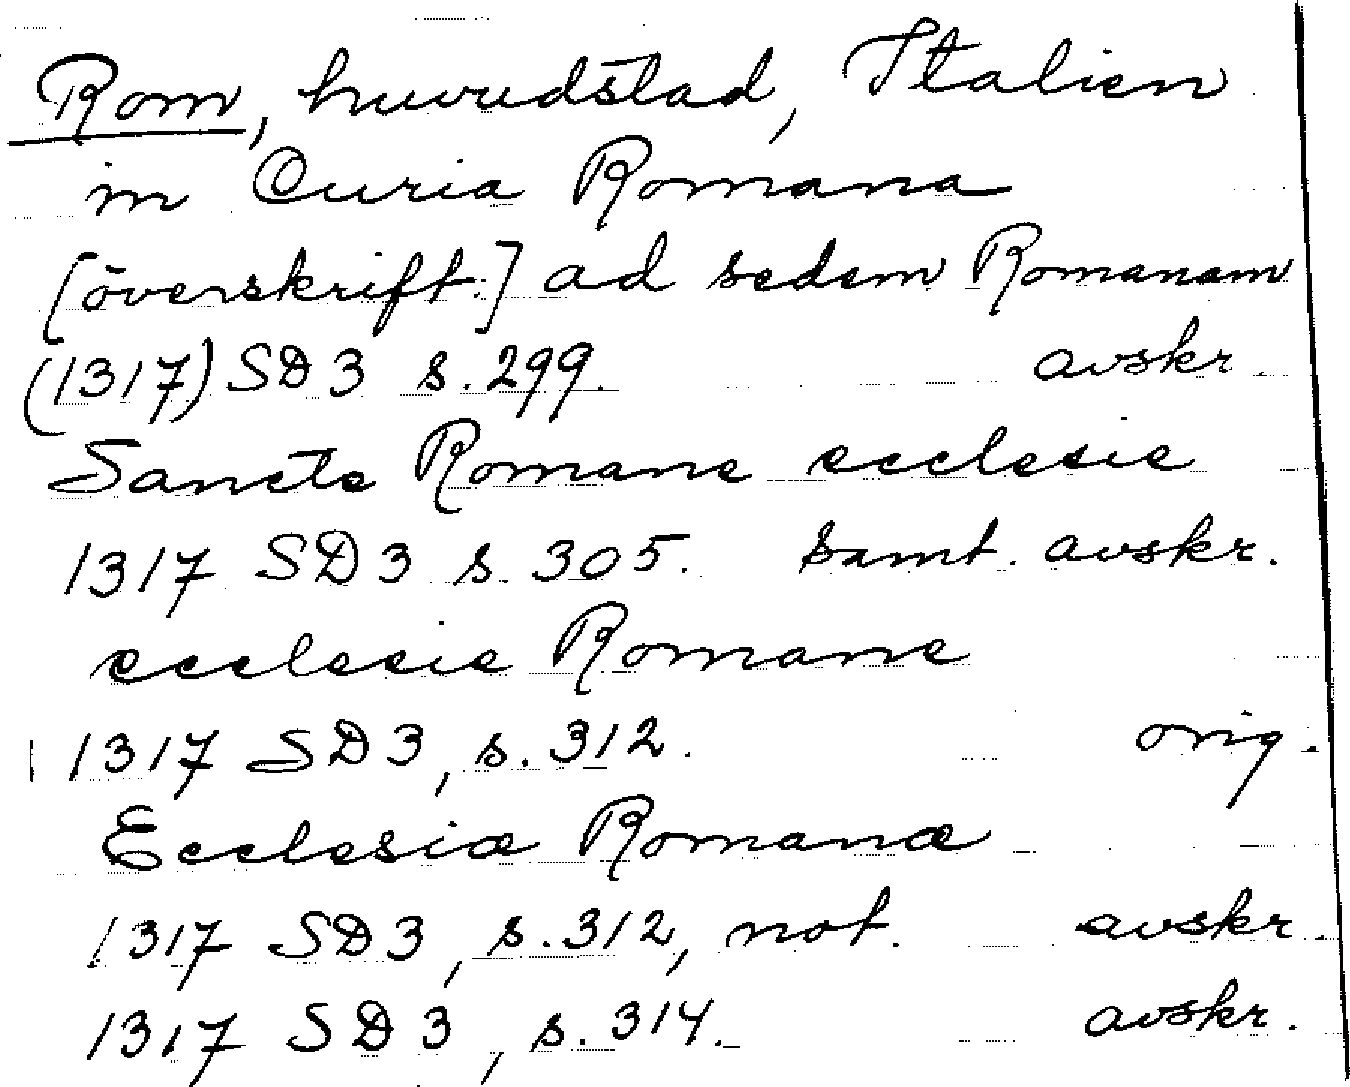 Rom, huvudstad, Italien
in Curia Romana
[överskrift.] ad sedem Romanam
(1317) SD 3 s. 299. avskr.
Sancte Romane ecclesie
1317 SD 3 s. 305. samt. avskr.
ecclesie Romane
1317 SD 3, s. 312. orig.
Ecclesiæ Romanæ
1317 SD 3, s. 312, not. avskr.
1317 SD 3, s. 314. avskr.